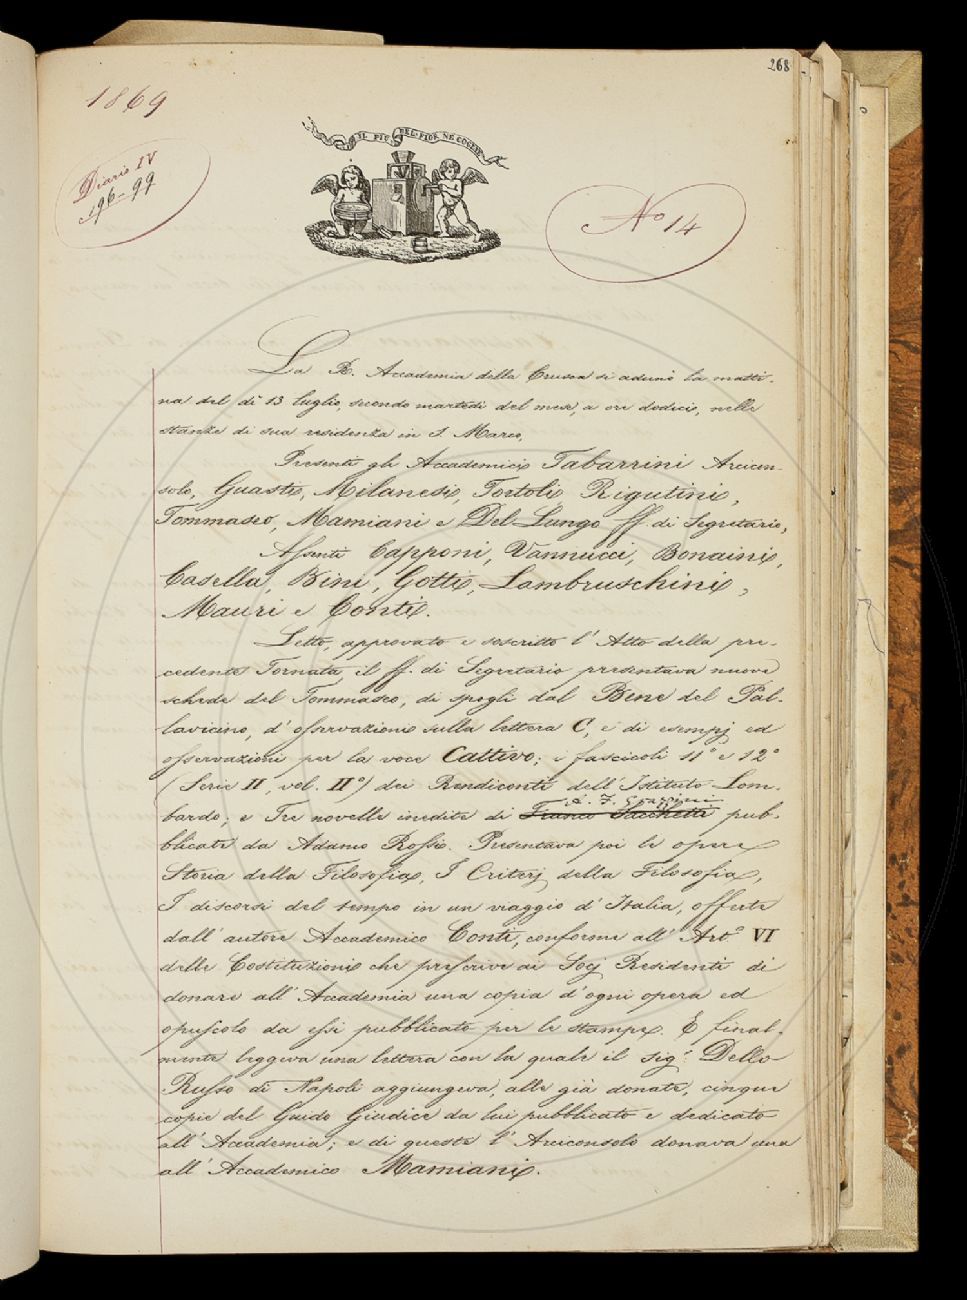 268
1869
Diario IV
c. 96-99
IL PIÙ BEL FIOR NE COGLIE
N.º 14
La R. Accademia della Crusca si adunò la matti-
na del dì 13 luglio, secondo martedì del mese, a ore dodici, nelle
stanze di sua residenza in S. Marco.
Presenti gli Accademici Tabarrini Arcicon-
solo, Guasti, Milanesi, Tortoli Rigutini,
Tommaseo, Mamiani e Del-Lungo ff. di Segretario;
Assenti Capponi, Vannucci, Bonaini,
Casella, Bini, Gotti, Lambruschini,
Mauri e Conti.
Letto, approvato e soscritto l' Atto della pre-
cedente Tornata, il ff. di Segretario presentava nuove
schede del Tommaseo, di spogli dal Bene del Pal-
lavicino, d' osservazioni sulla lettera C, e di esempj ed
osservazioni per la voce Cattivo; i fascicoli 11º e 12º
(Serie II, vol. IIº) dei Rendiconti dell' Istituto Lom-
A. F. Grazzini
bardo; e Tre novelle inedite di Franco Sacchetti pub-
blicate da Adamo Rossi. Presentava poi le opere
Storia della Filosofia, I Criterj della Filosofia,
I discorsi del tempo in un viaggio d' Italia, offerte
dall' autore Accademico Conti, conforme all' Art.º VI
delle Costituzioni che prescrive ai Socj Residenti di
donare all' Accademia una copia d' ogni opera ed
opuscolo da essi pubblicato per le stampe. E final-
mente leggeva una lettera con la quale il sig.r Dello-
Russo di Napoli aggiungeva, alle già donate, cinque
copie del Guido Giudice da lui pubblicato e dedicato
all' Accademia; e di queste l' Arciconsolo donava una
all' Accademico Mamiani.